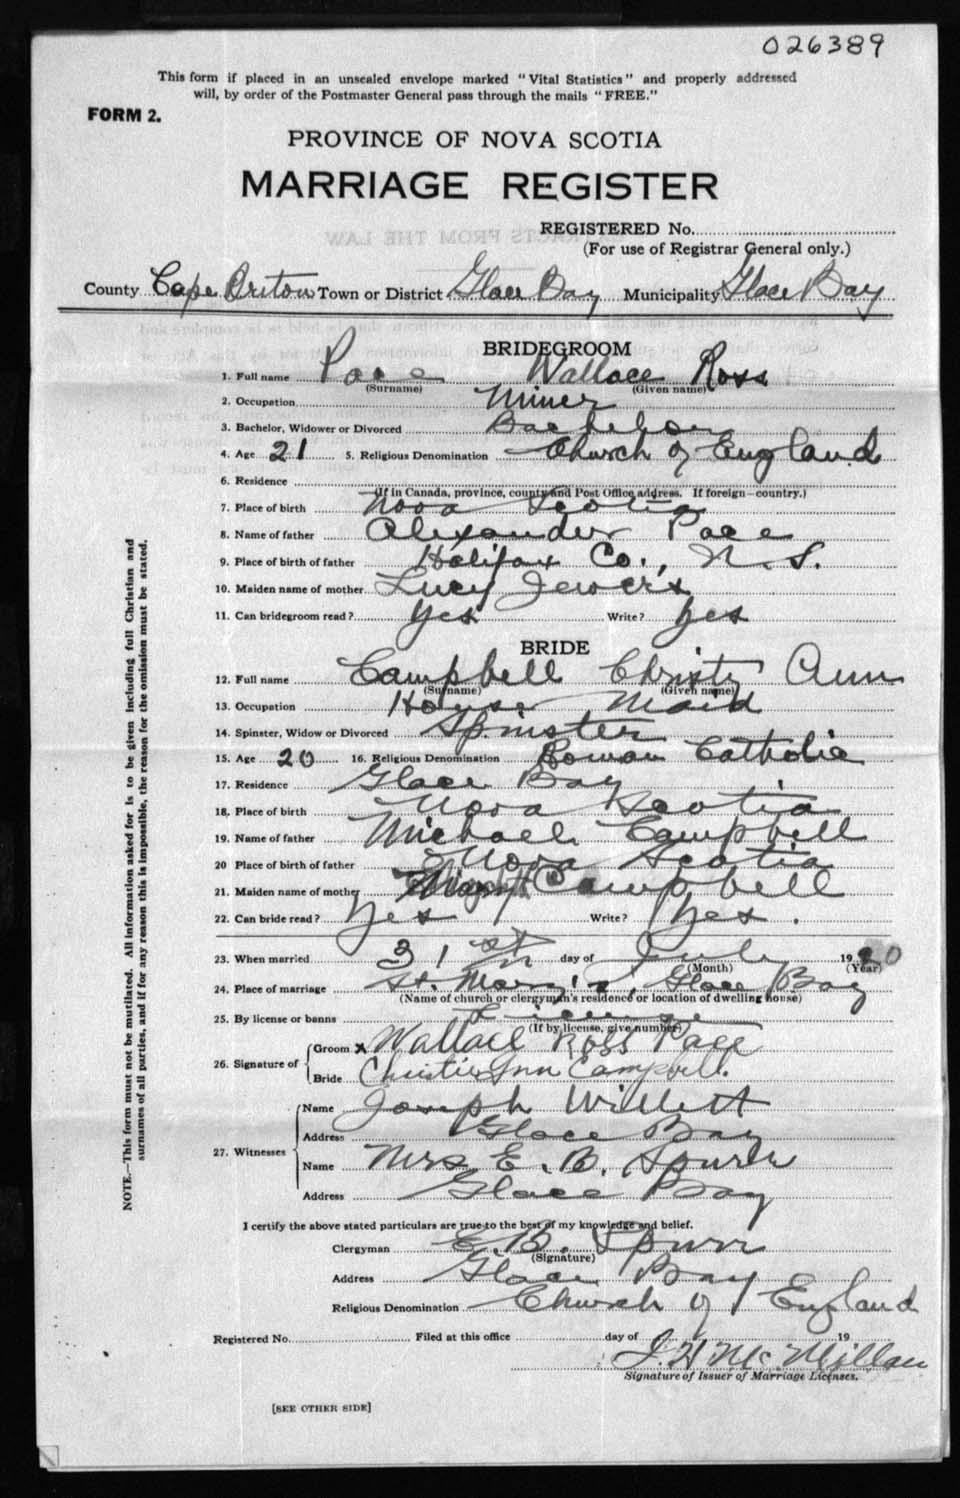 026389
This form if placed in an unsealed envelope marked "Vital Statistics" and properly addressed
will, by order of the Postmaster General pass through the mails "FREE."
FORM 2.
PROVINCE OF NOVA SCOTIA
MARRIAGE REGISTER
REGISTERED No.
(For use of Registrar General only.)
County Cape Breton Town or District Glace Bay Municipality Glace Bay
BRIDEGROOM
1. Full name Pace Wallace Ross
(Surname) (Given name)
2. Occupation Miner
3. Bachelor, Widower or Divorced Bachelor
4. Age 21 5. Religious Denomination Church of England
6. Residence
(If in Canada, province, county and Post Office address. If foreign—country.)
7. Place of birth Nova Scotia
8. Name of father Alexander Pace
9. Place of birth of father Halifax Co., N.S.
10. Maiden name of mother Lucy Jewers
11. Can bridegroom read? Yes Write? Yes
BRIDE
12. Full name Campbell Christy Ann
(Surname) (Given name)
13. Occupation House Maid
14. Spinster, Widow or Divorced Spinster
15. Age 20 16. Religious Denomination Roman Catholic
17. Residence Glace Bay
18. Place of birth Nova Scotia
19. Name of father Michael Campbell
20 Place of birth of father Nova Scotia
21. Maiden name of mother Campbell
22. Can bride read? Yes Write? Yes.
23. When married 31st day of July 1920
(Month) (Year)
24. Place of marriage St. Mary's, Glace Bay
(Name of church or clergyman's residence or location of dwelling house)
25. By license or banns License
(If by license, give number)
26. Signature of Groom x Wallace Ross Pace
Bride Christie Ann Campbell.
27. Witnesses Name Joseph Willett
Address Glace Bay
Name Mrs E. B. Spurr
Address Glace Bay
I certify the above stated particulars are true to the best of my knowledge and belief.
Clergyman E. B. Spurr
(Signature)
Address Glace Bay
Religious Denomination Church of England
Registered No. Filed at this office day of 19
J. H. McMillan
Signature of Issuer of Marriage Licenses.
[SEE OTHER SIDE]
NOTE.—This form must not be mutilated. All information asked for is to be given including full Christian and
surnames of all parties, and if for any reason this is impossible, the reason for the omission must be stated.